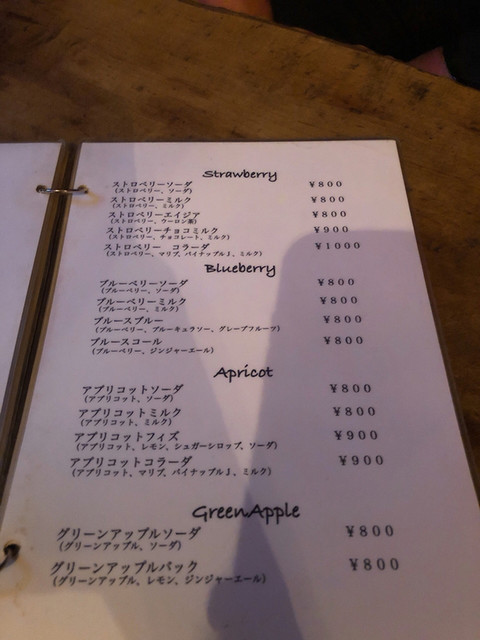 Strawberry
ストロベリーソーダ ￥800
(ストロベリー、ソーダ)
ストロベリーミルク ￥800
(ストロベリー、ミルク)
ストロベリーエイジア ￥800
(ストロベリー、ウーロン茶)
ストロベリーチョコミルク ￥900
(ストロベリー、チョコレート、ミルク)
ストロベリー コラーダ ￥1000
(ストロベリー、マリブ、パイナップルJ、ミルク)
Blueberry
ブルーベリーソーダ ￥800
(ブルーベリー、ソーダ)
ブルーベリーミルク ￥800
(ブルーベリー、ミルク)
ブルースブルー ￥800
(ブルーベリー、ブルーキュラソー、グレープフルーツ)
ブルースコール ￥800
(ブルーベリー、ジンジャーエール)
Apricot
アプリコットソーダ ￥800
(アプリコット、ソーダ)
アプリコットミルク ￥800
(アプリコット、ミルク)
アプリコットフィズ ￥900
(アプリコット、レモン、シュガーシロップ、ソーダ)
アプリコットコラーダ ￥900
(アプリコット、マリブ、パイナップルJ、ミルク)
GreenApple
グリーンアップルソーダ ￥800
(グリーンアップル、ソーダ)
グリーンアップルバック ￥800
(グリーンアップル、レモン、ジンジャーエール)